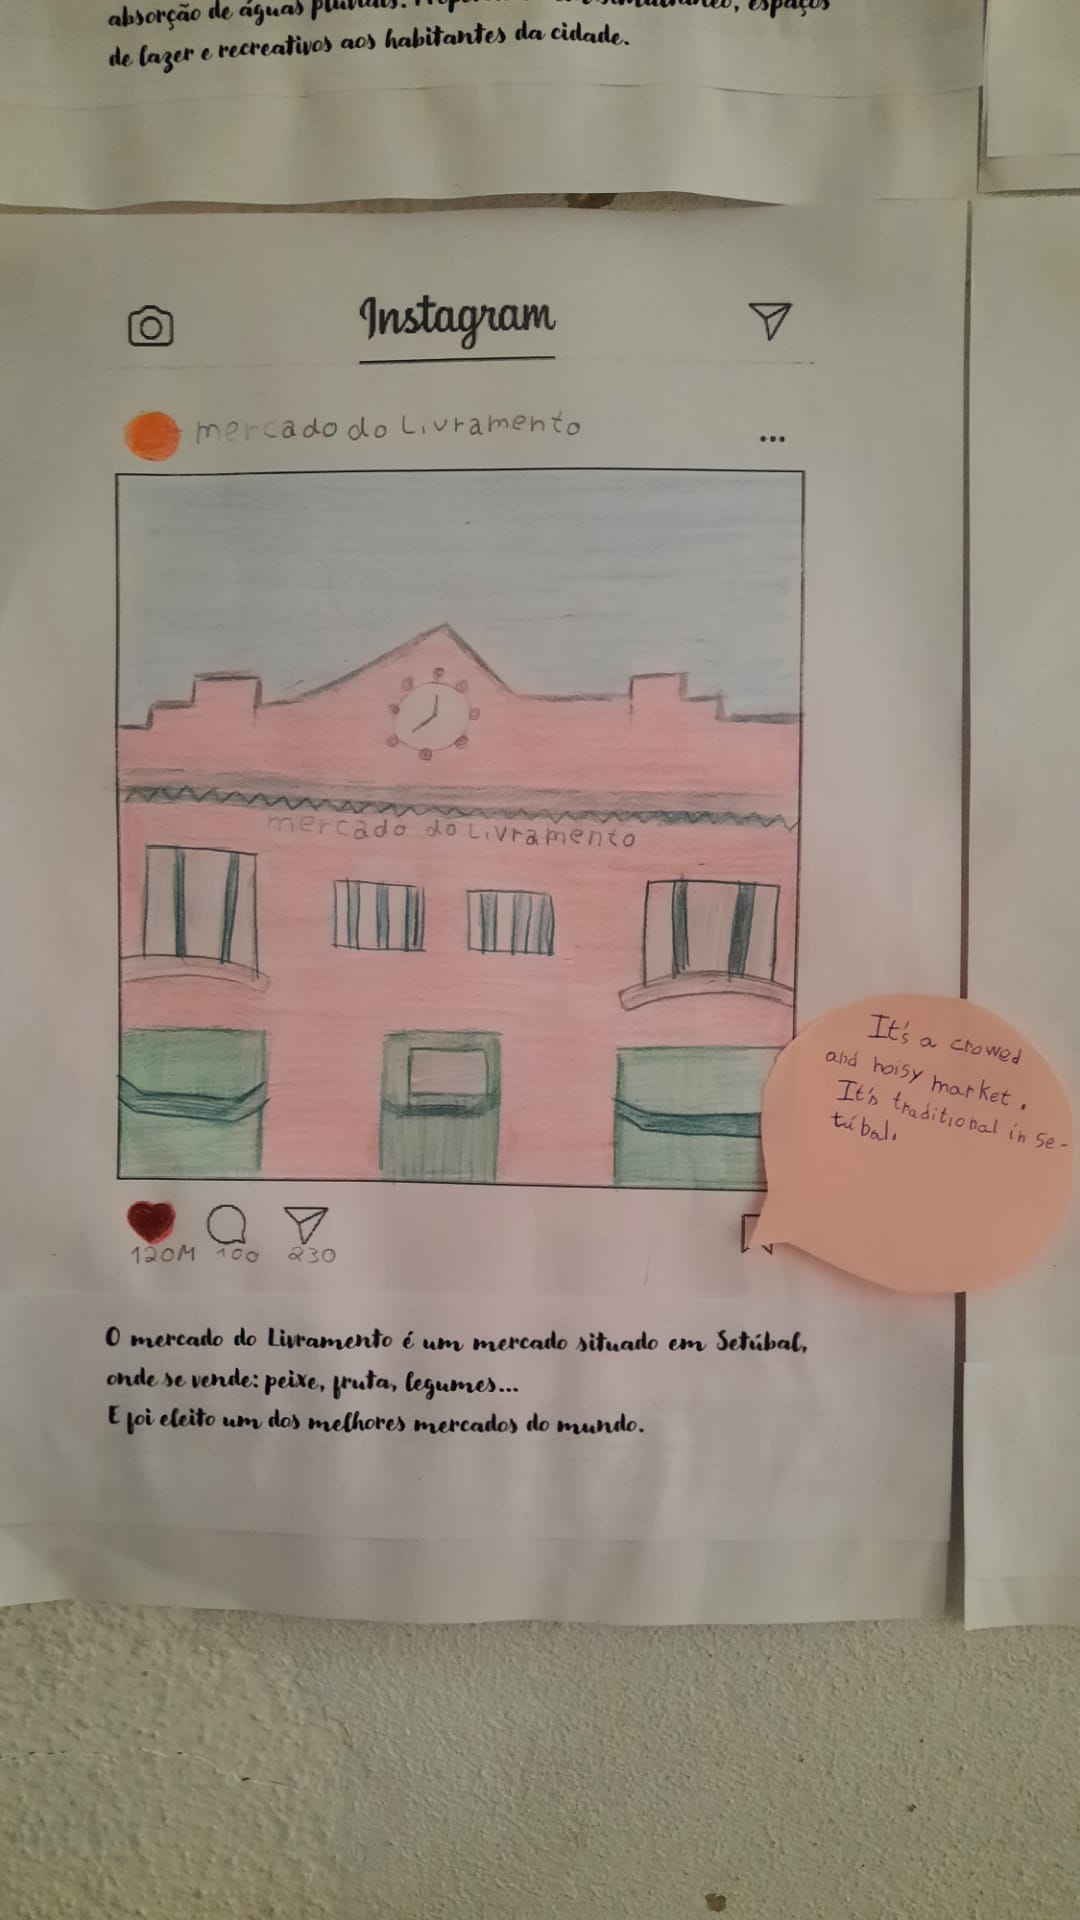 absorção de águas pluviais.
espaços
de lazer e recreativos aos habitantes da cidade.
Instagram
mercado do Livramento
mercado do Livramento
It's a crowed
and noisy market.
It's traditional in Se-
túbal.
120M 100 230
O mercado do Livramento é um mercado situado em Setúbal,
onde se vende: peixe, fruta, legumes...
E foi eleito um dos melhores mercados do mundo.